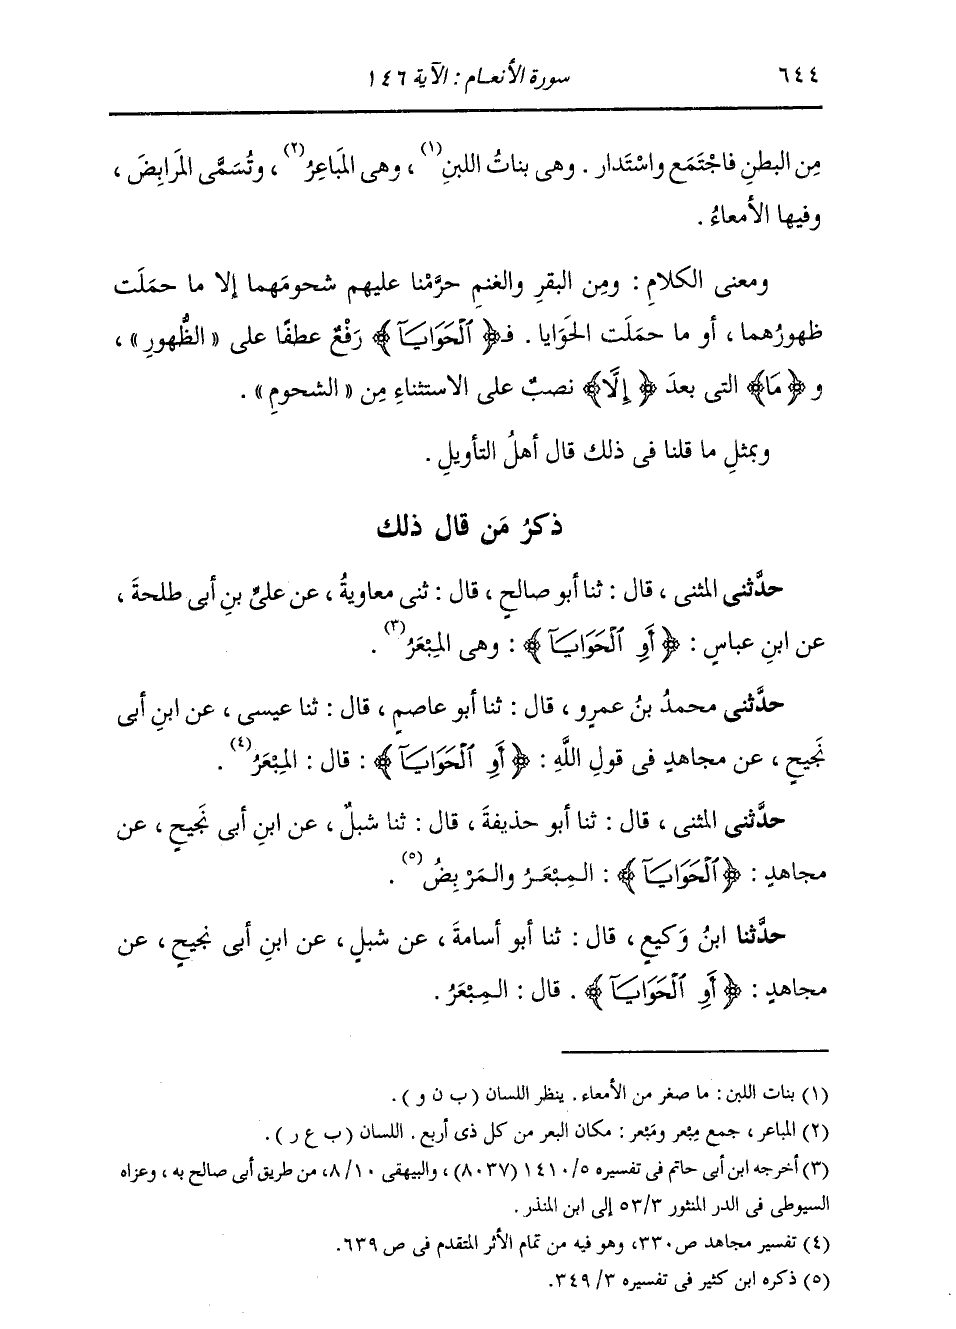 ٦٤٤ سورة الأنعام : الآية ١٤٦
مِن البطنِ فاجْتَمَع واسْتَدار . وهى بناتُ اللبنِ(١) ، وهى المَباعِرُ(٢) ، وتُسَمَّى المَرابِضَ ،
وفيها الأمعاءُ .
ومعنى الكلامِ : ومِن البقرِ والغنمِ حرَّمْنا عليهم شحومَهما إلا ما حمَلَت
ظهورُهما ، أو ما حمَلَت الحَوَايا . فـ﴿ ٱلْحَوَايَآ ﴾ رَفْعٌ عطفًا على « الظُّهورِ » ،
و ﴿ مَا﴾ التى بعدَ ﴿ إِلَّا﴾ نصبٌ على الاستثناءِ مِن « الشحومِ » .
وبمثلِ ما قلنا فى ذلك قال أهلُ التأويلِ .
ذكرُ مَن قال ذلك
حدَّثنى المثنى ، قال : ثنا أبو صالحٍ ، قال : ثنى معاويةُ ، عن علىِّ بنِ أبى طلحةَ ،
عن ابنِ عباسٍ : ﴿ أَوِ ٱلْحَوَايَآ ﴾ : وهى المِبْعَرُ(٣) .
حدَّثنى محمدُ بنُ عمرٍو ، قال : ثنا أبو عاصمٍ ، قال : ثنا عيسى ، عن ابنِ أبى
نَجيحٍ ، عن مجاهدٍ فى قولِ اللَّهِ : ﴿ أَوِ ٱلْحَوَايَآ ﴾ : قال : المِبْعَرُ(٤) .
حدَّثنى المثنى ، قال : ثنا أبو حذيفةَ ، قال : ثنا شبلٌ ، عن ابنِ أبى نَجيحٍ ، عن
مجاهدٍ : ﴿ ٱلْحَوَايَآ ﴾ : المِبْعَرُ والمَرْبِضُ(٥) .
حدَّثنا ابنُ وَكيعٍ ، قال : ثنا أبو أسامةَ ، عن شبلٍ ، عن ابنِ أبى نجيحٍ ، عن
مجاهدٍ : ﴿ أَوِ ٱلْحَوَايَآ ﴾ . قال : المِبْعَرُ .
(١) بنات اللبن : ما صغر من الأمعاء . ينظر اللسان ( ب ن و ) .
(٢) المباعر ، جمع مِبْعر ومَبْعر : مكان البعر من كل ذى أربع . اللسان ( ب ع ر ) .
(٣) أخرجه ابن أبى حاتم فى تفسيره ١٤١٠/٥ (٨٠٣٧) ، والبيهقى ٨/١٠، من طريق أبى صالح به ، وعزاه
السيوطى فى الدر المنثور ٥٣/٣ إلى ابن المنذر .
(٤) تفسير مجاهد ص٣٣٠، وهو فيه من تمام الأثر المتقدم فى ص ٦٣٩.
(٥) ذكره ابن كثير فى تفسيره ٣/ ٣٤٩.